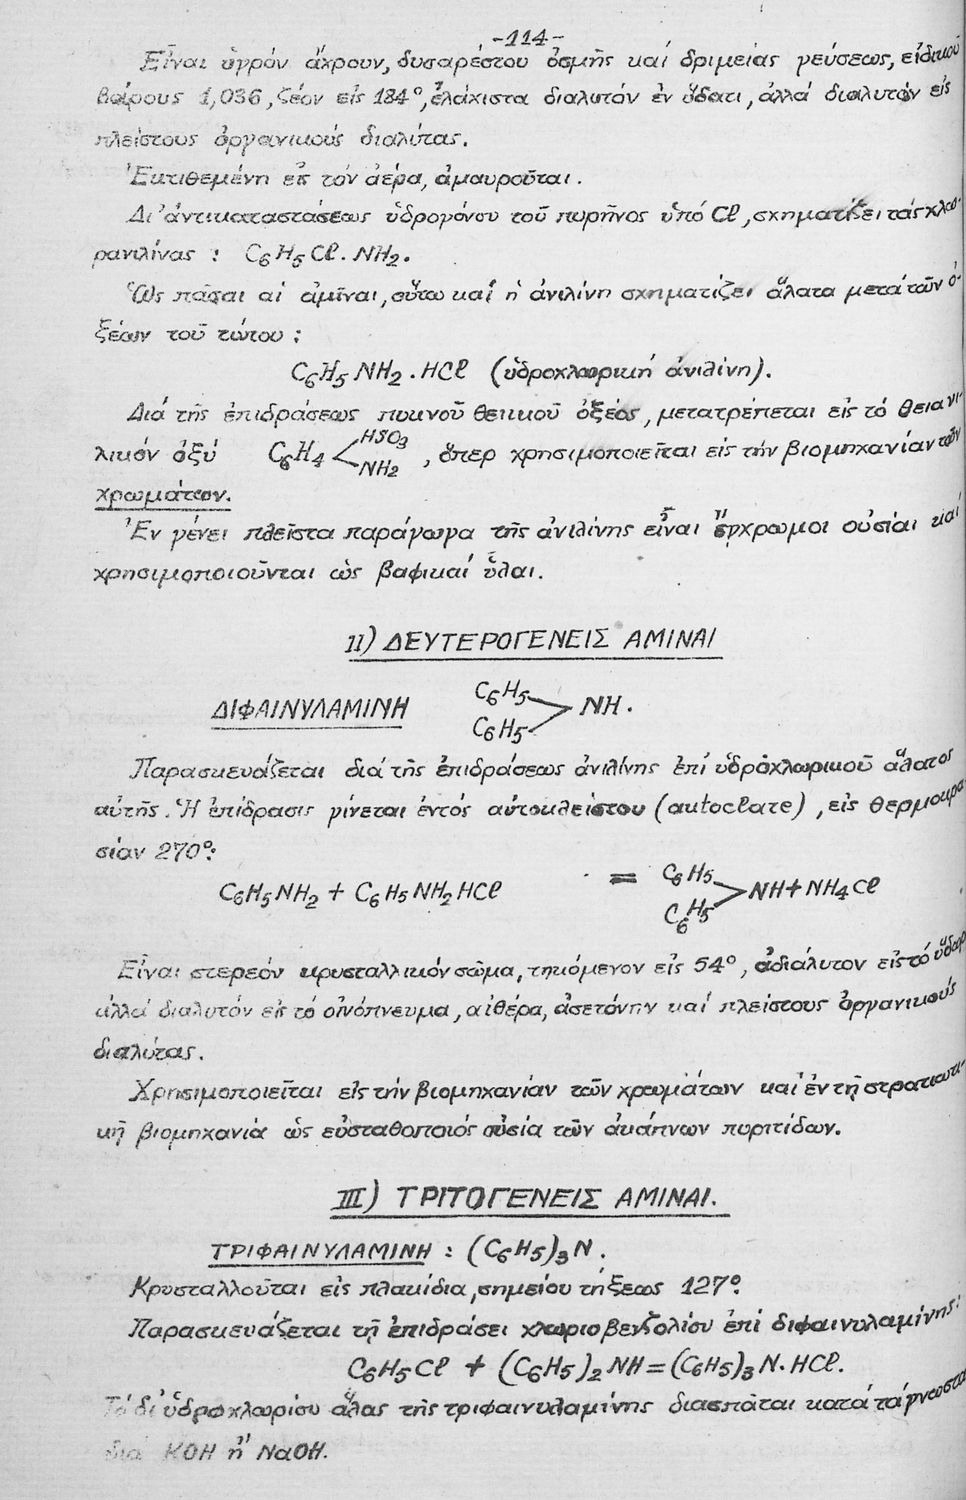 -114-
Εἶναι ὑγρόν ἄχρουν, δυσαρέστου ὀσμῆς καί δριμείας γεύσεως, εἰδικοῦ
βάρους 1,036, ζέον εἰς 184°, ἐλάχιστα διαλυτόν ἐν ὕδατι, ἀλλά διαλυτόν εἰς
πλείστους ὀργανικούς διαλύτας.
Ἐκτιθεμένη εἰς τόν ἀέρα, ἀμαυροῦται.
Δι' ἀντικαταστάσεως ὑδρογόνου τοῦ πυρῆνος ὑπό Cl, σχηματίζει τάς χλω-
ρανιλίνας : C₆H₅Cl.NH₂.
Ὡς πᾶσαι αἱ ἀμῖναι, οὕτω καί ἡ ἀνιλίνη σχηματίζει ἅλατα μετά τῶν ὀ-
ξέων τοῦ τύπου :
C₆H₅NH₂.HCl (ὑδροχλωρική ἀνιλίνη).
Διά τῆς ἐπιδράσεως πυκνοῦ θειικοῦ ὀξέος, μετατρέπεται εἰς τό θειανι-
λικόν ὀξύ C₆H₄<HSO₃ NH₂, ὅπερ χρησιμοποιεῖται εἰς τήν βιομηχανίαν τῶν
χρωμάτων.
Ἐν γένει πλεῖστα παράγωγα τῆς ἀνιλίνης εἶναι ἔγχρωμοι οὐσίαι καί
χρησιμοποιοῦνται ὡς βαφικαί ὗλαι.
II) ΔΕΥΤΕΡΟΓΕΝΕΙΣ ΑΜΙΝΑΙ
ΔΙΦΑΙΝΥΛΑΜΙΝΗ C₆H₅ C₆H₅>NH.
Παρασκευάζεται διά τῆς ἐπιδράσεως ἀνιλίνης ἐπί ὑδροχλωρικοῦ ἅλατος
αὐτῆς. Ἡ ἐπίδρασις γίνεται ἐντός αὐτοκλείστου (autoclate), εἰς θερμοκρα
σίαν 270°:
C₆H₅NH₂ + C₆H₅NH₂HCl = C₆H₅ C₆H₅>NH + NH₄Cl
Εἶναι στερεόν κρυσταλλικόν σῶμα, τηκόμενον εἰς 54°, ἀδιάλυτον εἰς τό ὕδωρ
ἀλλά διαλυτόν εἰς τό οἰνόπνευμα, αἰθέρα, ἀσετόνην καί πλείστους ὀργανικούς
διαλύτας.
Χρησιμοποιεῖται εἰς τήν βιομηχανίαν τῶν χρωμάτων καί ἐν τῇ στρατιωτι-
κῇ βιομηχανίᾳ ὡς εὐσταθοποιός οὐσία τῶν ἀκάπνων πυριτίδων.
III) ΤΡΙΤΟΓΕΝΕΙΣ ΑΜΙΝΑΙ.
ΤΡΙΦΑΙΝΥΛΑΜΙΝΗ : (C₆H₅)₃N.
Κρυσταλλοῦται εἰς πλακίδια, σημείου τήξεως 127°.
Παρασκευάζεται τῇ ἐπιδράσει χλωριοβενζολίου ἐπί διφαινυλαμίνης:
C₆H₅Cl + (C₆H₅)₂NH = (C₆H₅)₃N.HCl.
Τό δι' ὑδροχλωρίου ἅλας τῆς τριφαινυλαμίνης διασπᾶται κατά τά γνωστά
διά KOH ἤ NaOH.